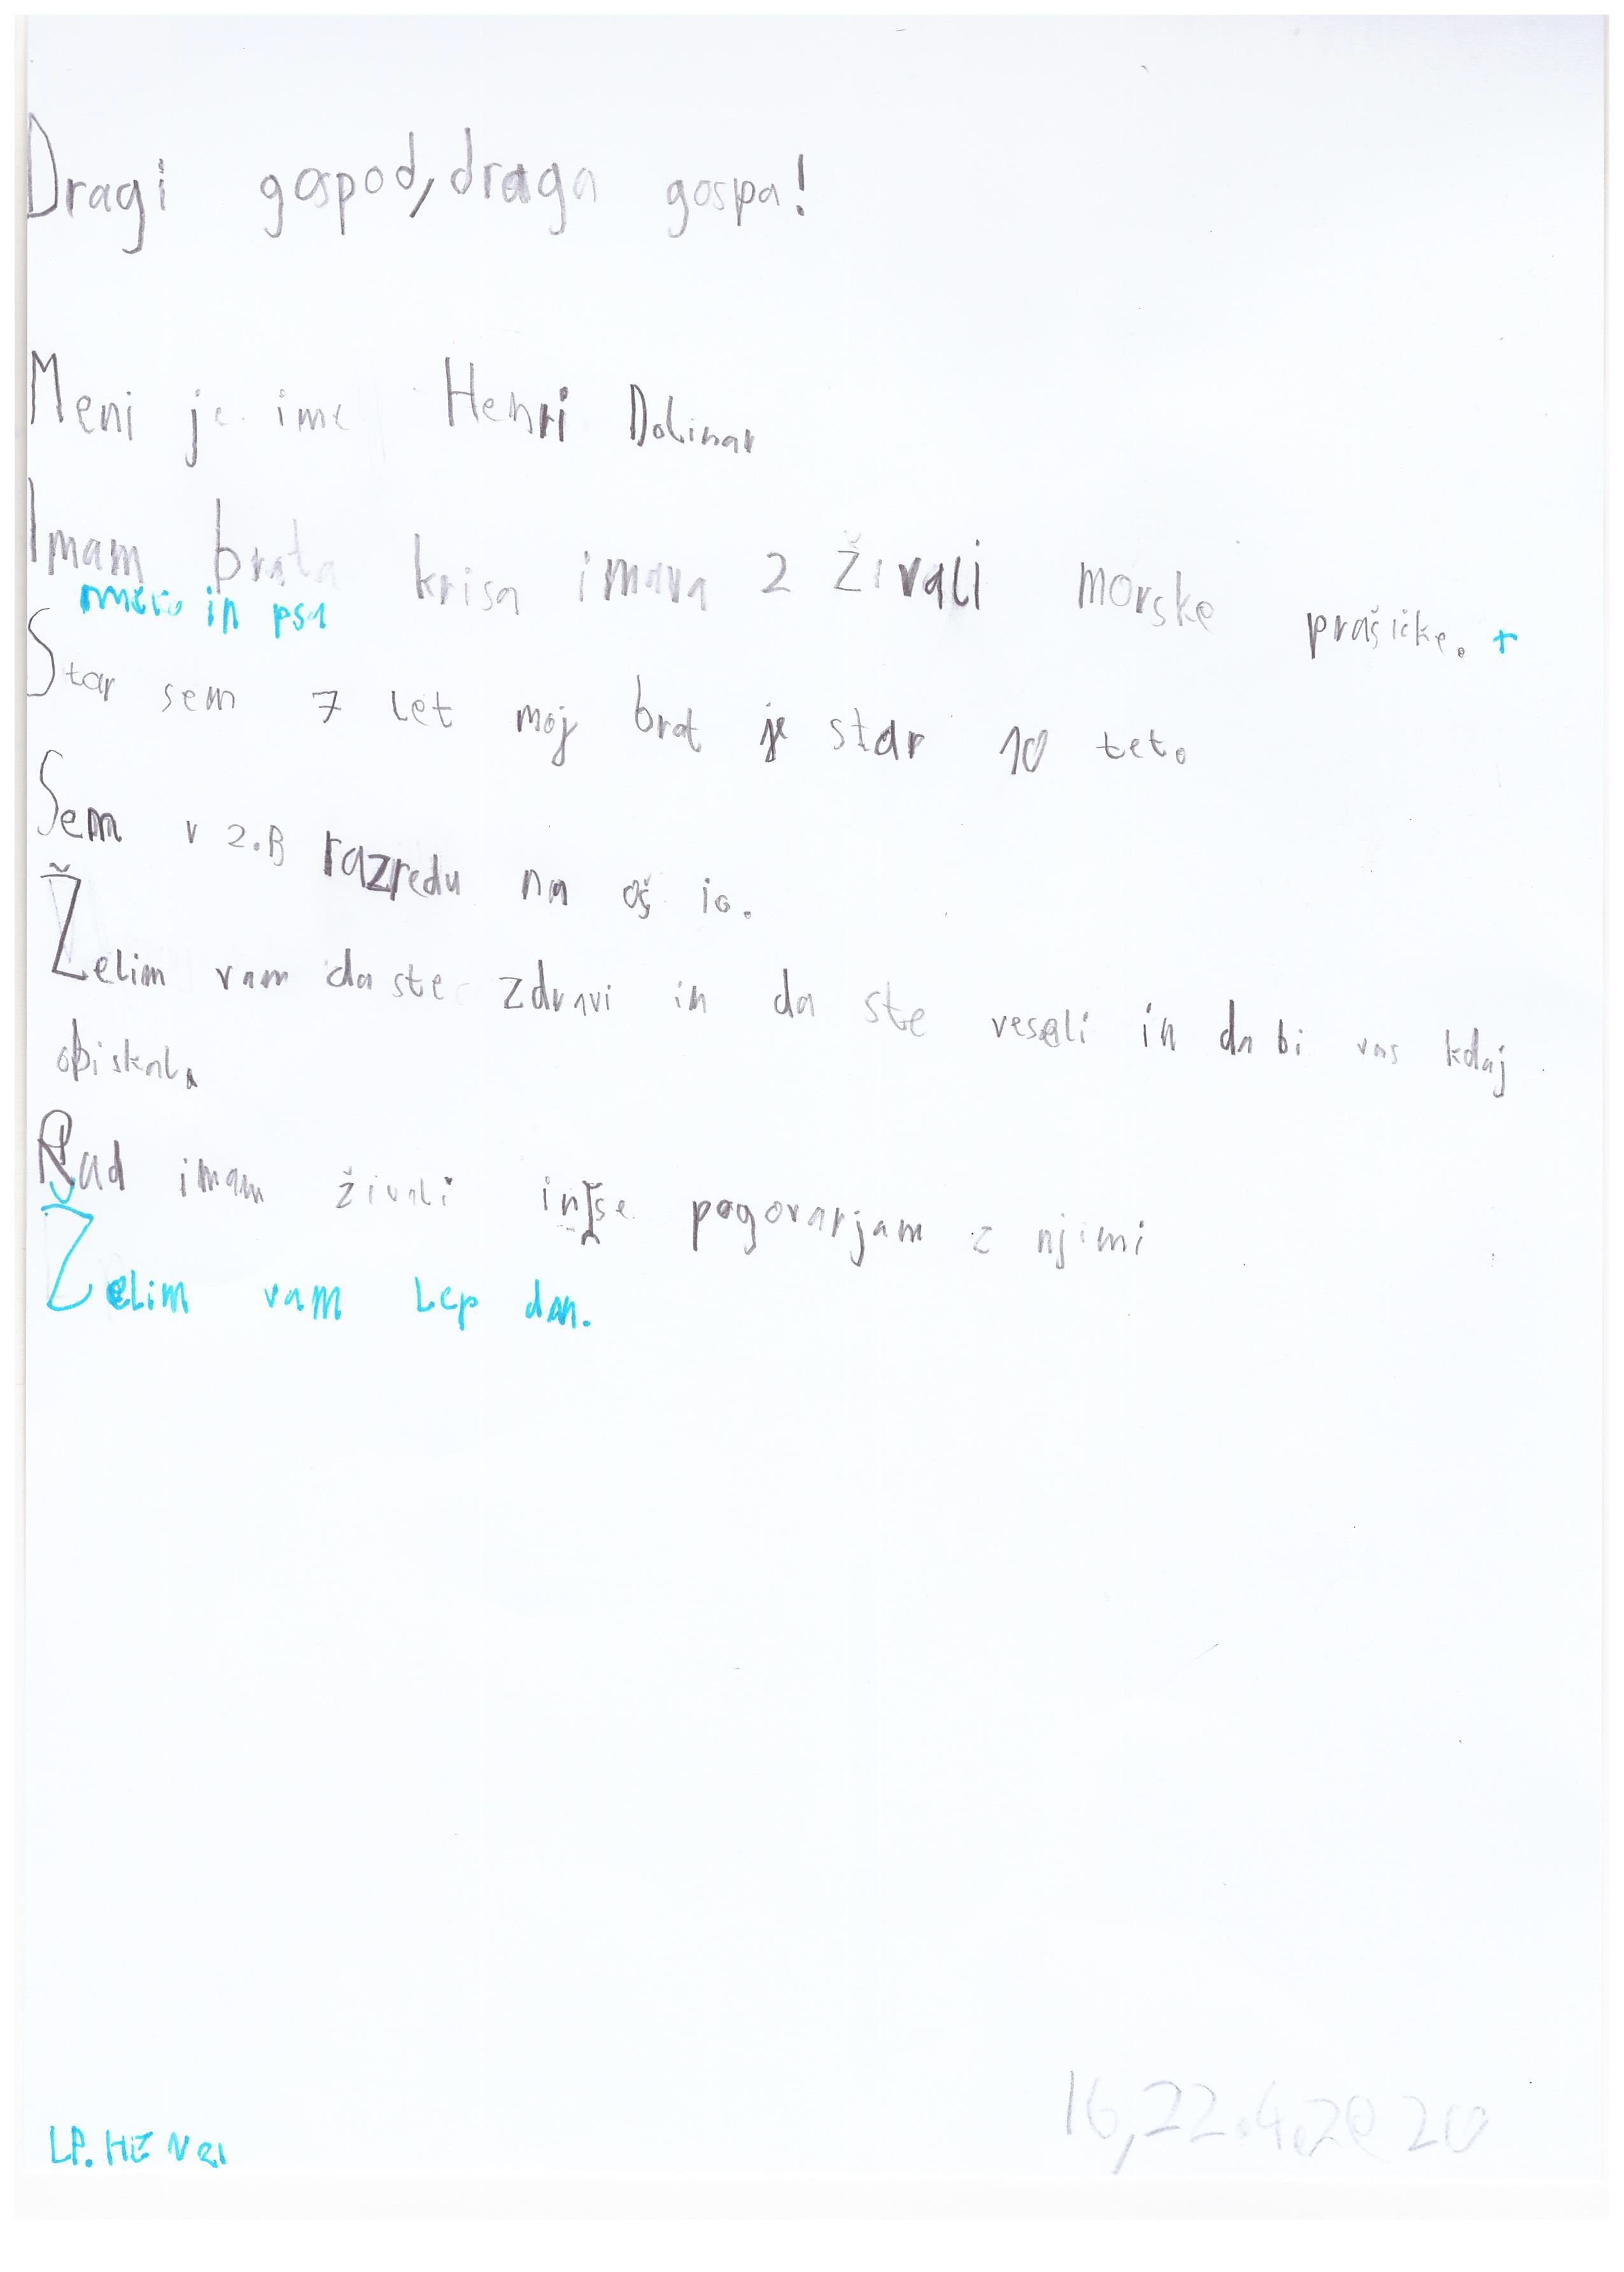 Dragi gospod, draga gospa!
Meni je ime Henri Dolinar
Imam brata krisa imava 2 živali morske prašičke. +
in psa
Star sem 7 let moj brat je star 10 let.
Sem v 2.B razredu na oš ig.
Želim vam da ste zdravi in da ste veseli in da bi vas kdaj
obiskala
Rad imam živali in še pogovarjam z njimi
Želim vam lep dan.
16,22.4.2020
LP. HENRI